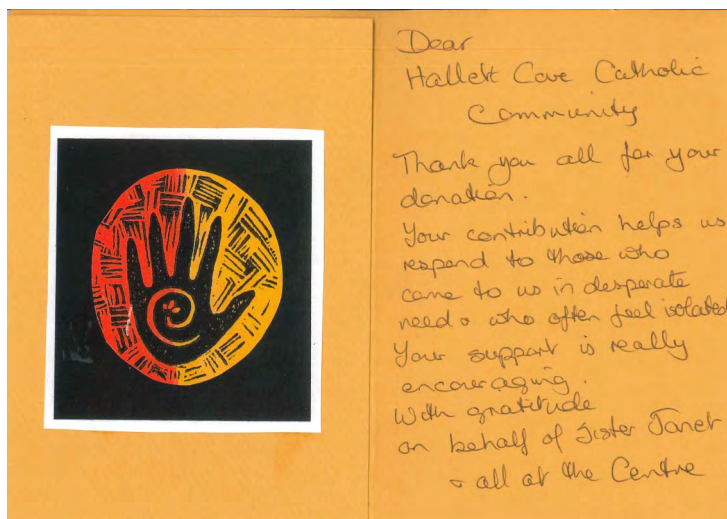 Dear
Hallett Cove Catholic
Community
Thank you all for your
donation.
Your contribution helps us
respond to those who
come to us in desperate
need & who often feel isolated
Your support is really
encouraging.
With gratitude
on behalf of Sister Janet
& all at the Centre